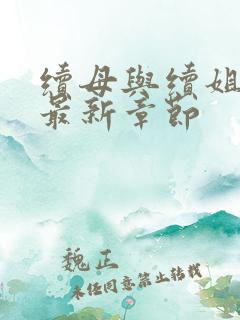 續母與續姐
最新章節
魏正
未经同意禁止转载